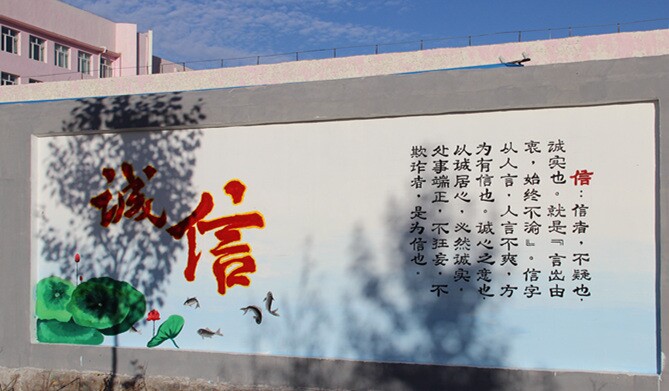 诚信
信：信者，不疑也，
诚实也。就是『言出由
衷，始终不渝』。信字
从人言，人言不爽，方
为有信也。诚心之意也，
以诚居心，必然诚实，
处事端正，不狂妄，不
欺诈者，是为信也。